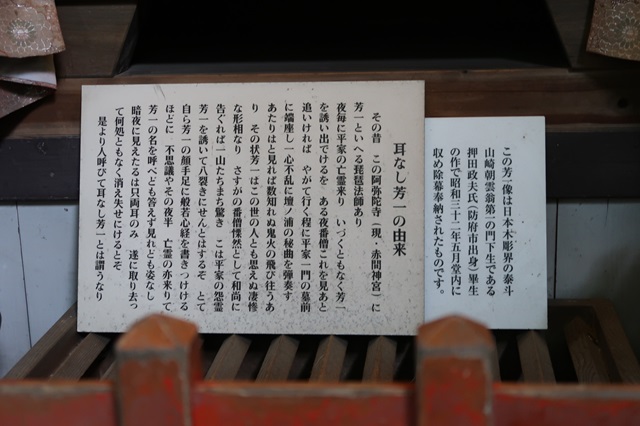 耳なし芳一の由来
その昔 この阿弥陀寺(現・赤間神宮)に
芳一といへる琵琶法師あり
夜毎に平家の亡霊来り いづくともなく芳一
を誘い出でけるを ある夜番僧これを見あと
追いければ やがて行く程に平家一門の墓前
に端座し一心不乱に壇ノ浦の秘曲を弾奏す
あたりはと見れば数知れぬ鬼火の飛び往うあ
り その状芳一はこの世の人とも思えぬ凄惨
な形相なり さすがの番僧慄然として和尚に
告ぐれば一山たちまち驚き こは平家の怨霊
芳一を誘いて八裂きにせんとはするぞ とて
自ら芳一の顔手足に般若心経を書きつけける
ほどに 不思議やその夜半 亡霊の亦来りて
芳一の名を呼べども答えず見れども姿なし
暗夜に見えたるは只両耳のみ 遂に取り去っ
て何処ともなく消え失せにけるとぞ
是より人呼びて耳なし芳一とは謂うなり
この芳一像は日本木彫界の泰斗
山崎朝雲翁第一の門下生である
押田政夫氏(防府市出身)畢生
の作で昭和三十二年五月堂内に
収め除幕奉納されたものです。